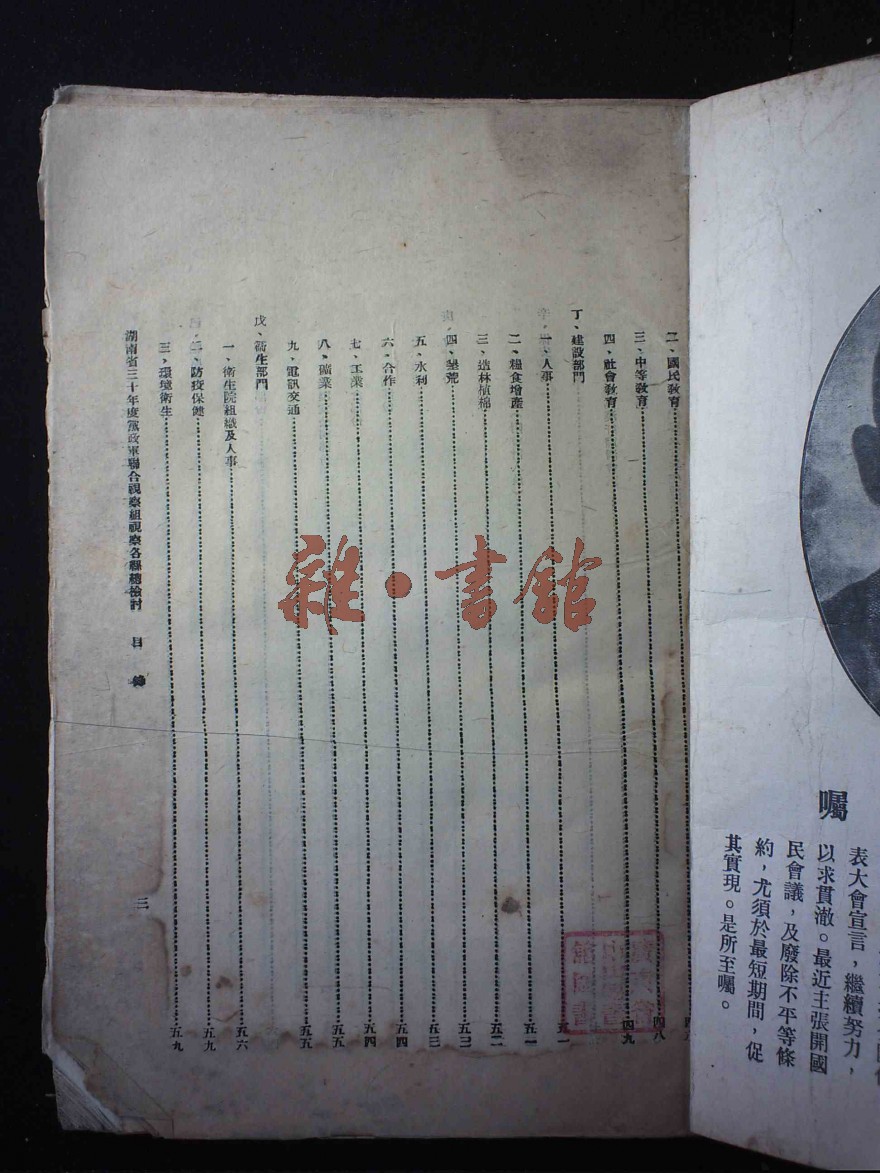 囑
表大會宣言，繼續努力，
以求貫澈。最近主張開國
民會議，及廢除不平等條
約，尤須於最短期間，促
其實現。是所至囑。
二、國民教育
三、中等教育 四八
四、社會教育 四九
丁、建設部門
一、人事 五一
二、糧食增產 五一
三、造林植棉 五二
四、墾荒 五三
五、水利 五三
六、合作 五四
七、工業 五四
八、礦業 五五
九、電訊交通 五五
戊、衛生部門
一、衛生院組織及人事 五六
二、防疫保健 五九
三、環境衛生 五九
湖南省三十年度黨政軍聯合視察組視察各縣總檢討 目錄
三
雜·書館